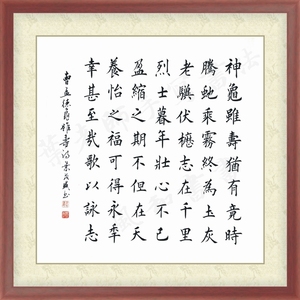 神龜雖壽猶有竟時
騰虵乘霧終為土灰
老驥伏櫪志在千里
烈士暮年壯心不已
盈縮之期不但在天
養怡之福可得永秊
幸甚至哉歌以詠志
曹孟德龜雖壽詩